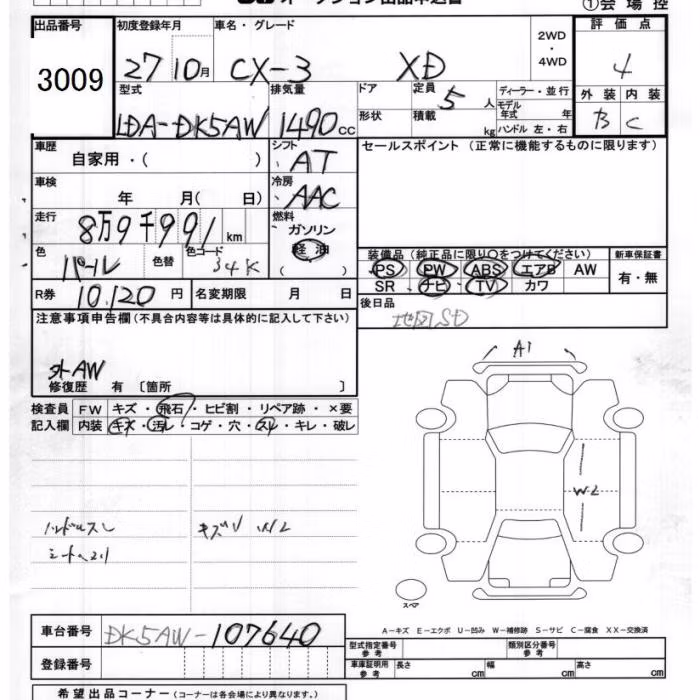 オークション出品申込書
①会場控
出品番号 初度登録年月 車名・グレード 2WD ・ 4WD 評価点
3009 27 10月 CX-3 XD 4
型式 排気量 ドア 定員 5人 ディーラー・並行 外装 内装
LDA-DK5AW 1490cc 形状 積載 kg モデル年式 年 ハンドル 左・右 B C
車歴 自家用・( ) シフト AT セールスポイント (正常に機能するものに限ります)
車検 年 月( 日) 冷房 AAC
走行 8万9千991km 燃料 ガソリン 軽油 ( )
色 パール 色替 色コード 34K
装備品 (純正品に限り○をつけてください) 新車保証書
PS PW ABS エアB AW 有・無
SR ナビ TV カワ
R券 10,120円 名変期限 月 日 後日品
地図SD
注意事項申告欄 (不具合内容等は具体的に記入して下さい)
外AW
修復歴 有 〔箇所 〕
検査員記入欄 FW キズ・飛石・ヒビ割・リペア跡・×要
内装 キズ・汚レ・コゲ・穴・スレ・キレ・破レ
A1
W2
ハンドルスレ キズU W2
シートヘタリ
スペア
A-キズ E-エクボ U-凹み W-補修跡 S-サビ C-腐食 XX-交換済
車台番号 DK5AW-107640
型式指定番号 参考 類別区分番号 参考
登録番号 車庫証明用 参考 長さ cm 幅 cm 高さ cm
希望出品コーナー (コーナーは各会場により異なります。)